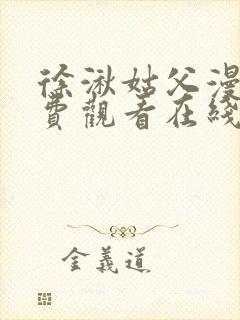 徐湫姑父漫
費觀看在綫
金義道